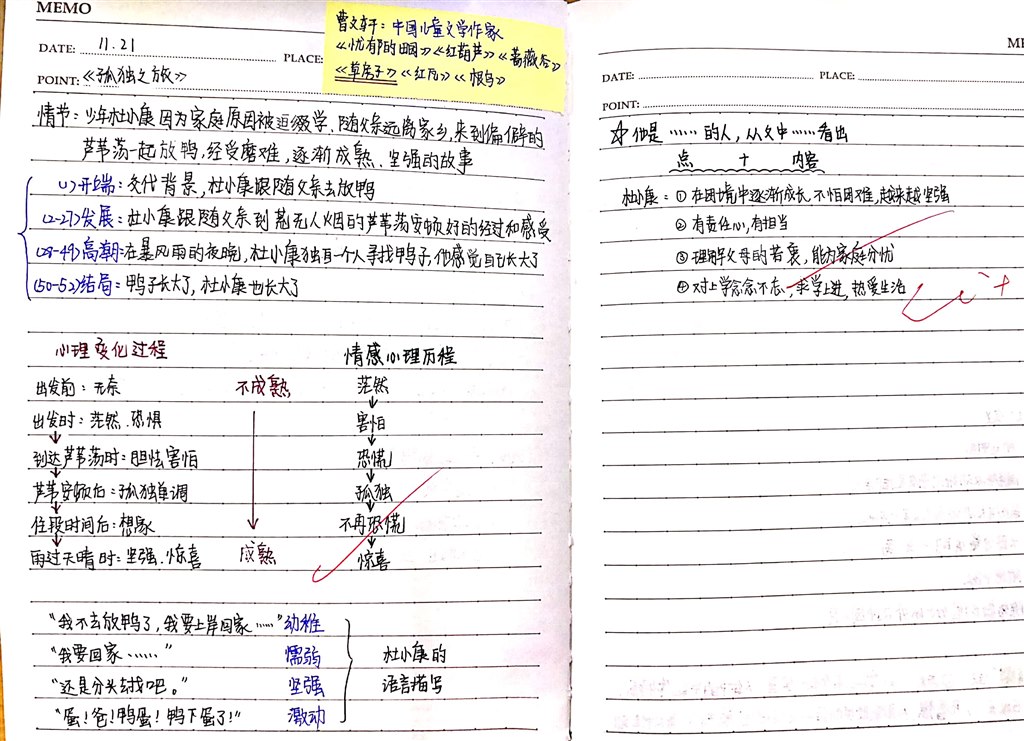 MEMO
DATE: 11.21
PLACE:
POINT: 《孤独之旅》
曹文轩：中国儿童文学作家
《忧郁的田园》《红葫芦》《蔷薇谷》
《草房子》《红瓦》《根鸟》
情节：少年杜小康因为家庭原因被迫辍学，随父亲远离家乡，来到偏僻的
芦苇荡一起放鸭，经受磨难，逐渐成熟、坚强的故事
(1)开端：交代背景，杜小康跟随父亲去放鸭
(2-27)发展：杜小康跟随父亲到荒无人烟的芦苇荡安顿好的经过和感受
(28-49)高潮：在暴风雨的夜晚，杜小康独自一个人寻找鸭子，他感觉自己长大了
(50-52)结局：鸭子长大了，杜小康也长大了
心理变化过程
情感心理历程
出发前：无奈 不成熟 茫然
出发时：茫然、恐惧 害怕
到达芦苇荡时：胆怯害怕 恐慌
芦苇安顿后：孤独单调 孤独
住段时间后：想家 不再恐慌
雨过天晴时：坚强、惊喜 成熟 惊喜
“我不去放鸭了，我要上岸回家……” 幼稚
“我要回家……” 懦弱
“还是分头去找吧。” 坚强
“蛋！爸！鸭蛋！鸭下蛋了！” 激动
杜小康的
语言描写
ME
DATE:
PLACE:
POINT:
☆他是……的人，从文中……看出
点 + 内容
杜小康：①在困境中逐渐成长，不怕困难，越来越坚强
②有责任心，有担当
③理解父母的苦衷，能为家庭分忧
④对上学念念不忘，求学上进，热爱生活